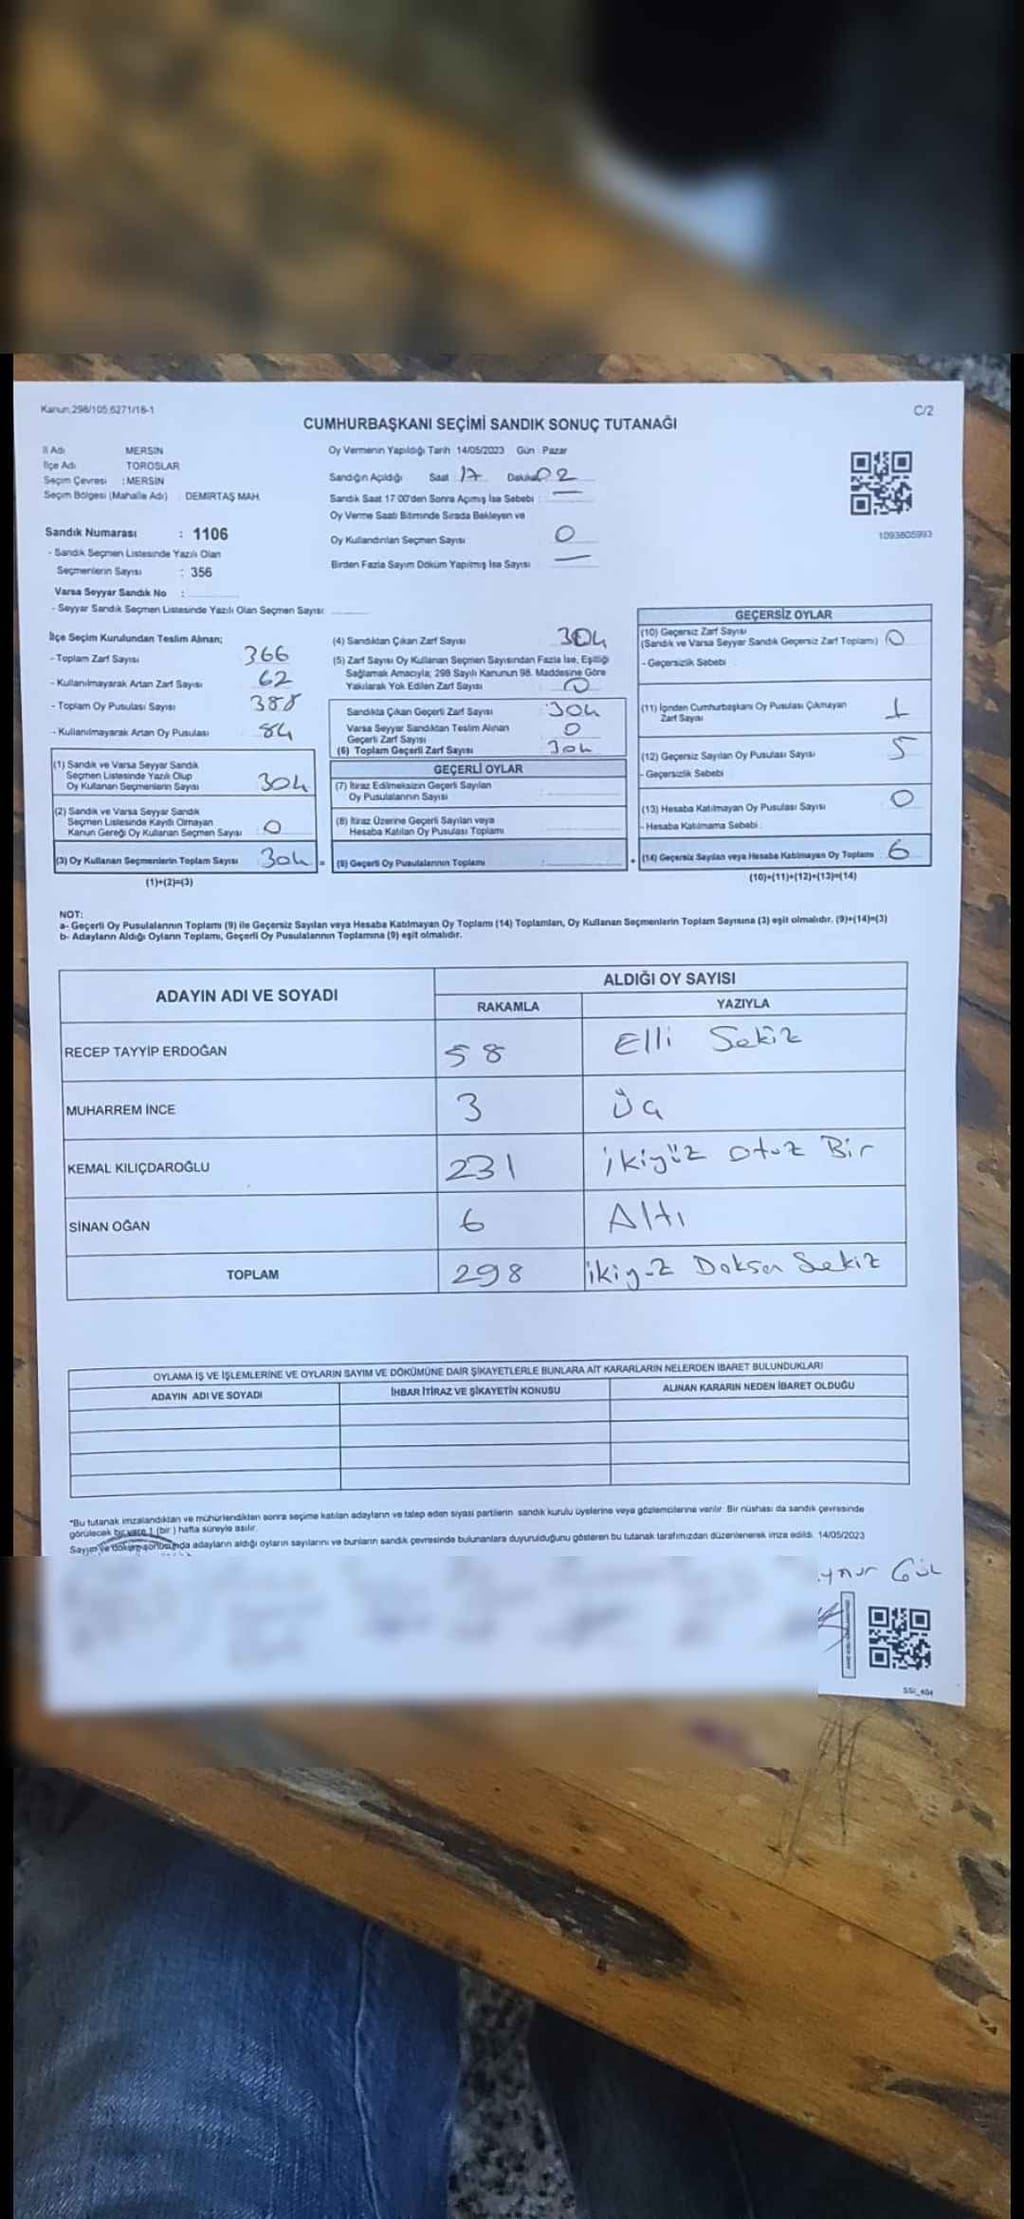 Kanun,298/105,6271/18-1
C/2
CUMHURBAŞKANI SEÇİMİ SANDIK SONUÇ TUTANAĞI
İl Adı MERSİN
İlçe Adı TOROSLAR
Seçim Çevresi : MERSİN
Seçim Bölgesi (Mahalle Adı) DEMİRTAŞ MAH.
Sandık Numarası : 1106
- Sandık Seçmen Listesinde Yazılı Olan
Seçmenlerin Sayısı : 356
Varsa Seyyar Sandık No :
- Seyyar Sandık Seçmen Listesinde Yazılı Olan Seçmen Sayısı:
Oy Vermenin Yapıldığı Tarih 14/05/2023 Gün Pazar
Sandığın Açıldığı Saat 17 Dakika 02
Sandık Saat 17:00'den Sonra Açımış İse Sebebi : —
Oy Verme Saati Bitiminde Sırada Bekleyen ve
Oy Kullandırılan Seçmen Sayısı 0
Birden Fazla Sayım Döküm Yapılmış İse Sayısı —
1093805993
İlçe Seçim Kurulundan Teslim Alınan;
- Toplam Zarf Sayısı 366
- Kullanılmayarak Artan Zarf Sayısı 62
- Toplam Oy Pusulası Sayısı 388
- Kullanılmayarak Artan Oy Pusulası 84
(1) Sandık ve Varsa Seyyar Sandık
Seçmen Listesinde Yazılı Olup
Oy Kullanan Seçmenlerin Sayısı 304
(2) Sandık ve Varsa Seyyar Sandık
Seçmen Listesinde Kaydı Olmayan
Kanun Gereği Oy Kullanan Seçmen Sayısı 0
(3) Oy Kullanan Seçmenlerin Toplam Sayısı 304 =
(1)+(2)=(3)
(4) Sandıktan Çıkan Zarf Sayısı 304
(5) Zarf Sayısı Oy Kullanan Seçmen Sayısından Fazla İse, Eşitliği
Sağlamak Amacıyla; 298 Sayılı Kanunun 98. Maddesine Göre
Yakılarak Yok Edilen Zarf Sayısı 0
Sandıkta Çıkan Geçerli Zarf Sayısı 304
Varsa Seyyar Sandıktan Teslim Alınan
Geçerli Zarf Sayısı 0
(6) Toplam Geçerli Zarf Sayısı 304
GEÇERLİ OYLAR
(7) İtiraz Edilmeksizin Geçerli Sayılan
Oy Pusulalarının Sayısı
(8) İtiraz Üzerine Geçerli Sayılan veya
Hesaba Katılan Oy Pusulası Toplamı
(9) Geçerli Oy Pusulalarının Toplamı +
GEÇERSİZ OYLAR
(10) Geçersiz Zarf Sayısı
(Sandık ve Varsa Seyyar Sandık Geçersiz Zarf Toplamı) 0
- Geçersizlik Sebebi
(11) İçinden Cumhurbaşkanı Oy Pusulası Çıkmayan
Zarf Sayısı 1
(12) Geçersiz Sayılan Oy Pusulası Sayısı 5
- Geçersizlik Sebebi
(13) Hesaba Katılmayan Oy Pusulası Sayısı 0
- Hesaba Katılmama Sebebi
(14) Geçersiz Sayılan veya Hesaba Katılmayan Oy Toplamı 6
(10)+(11)+(12)+(13)=(14)
NOT:
a- Geçerli Oy Pusulalarının Toplamı (9) ile Geçersiz Sayılan veya Hesaba Katılmayan Oy Toplamı (14) Toplamları, Oy Kullanan Seçmenlerin Toplam Sayısına (3) eşit olmalıdır. (9)+(14)=(3)
b- Adayların Aldığı Oyların Toplamı, Geçerli Oy Pusulalarının Toplamına (9) eşit olmalıdır.
ADAYIN ADI VE SOYADI
ALDIĞI OY SAYISI
RAKAMLA YAZIYLA
RECEP TAYYİP ERDOĞAN 58 Elli Sekiz
MUHARREM İNCE 3 Üç
KEMAL KILIÇDAROĞLU 231 ikiyüz otuz Bir
SİNAN OĞAN 6 Altı
TOPLAM 298 ikiyüz Doksan Sekiz
OYLAMA İŞ VE İŞLEMLERİNE VE OYLARIN SAYIM VE DÖKÜMÜNE DAİR ŞİKAYETLERLE BUNLARA AİT KARARLARIN NELERDEN İBARET BULUNDUKLARI
ADAYIN ADI VE SOYADI İHBAR İTİRAZ VE ŞİKAYETİN KONUSU ALINAN KARARIN NEDEN İBARET OLDUĞU
"Bu tutanak imzalandıktan ve mühürlendikten sonra seçime katılan adayların ve talep eden siyasi partilerin sandık kurulu üyelerine veya gözlemcilerine verilir. Bir nüshası da sandık çevresinde
görülecek bir yere 1 (bir ) hafta süreyle asılır.
Sayım ve döküm sonucunda adayların aldığı oyların sayılarını ve bunların sandık çevresinde bulunanlara duyurulduğunu gösteren bu tutanak tarafımızdan düzenlenerek imza edildi. 14/05/2023
ynur Gül